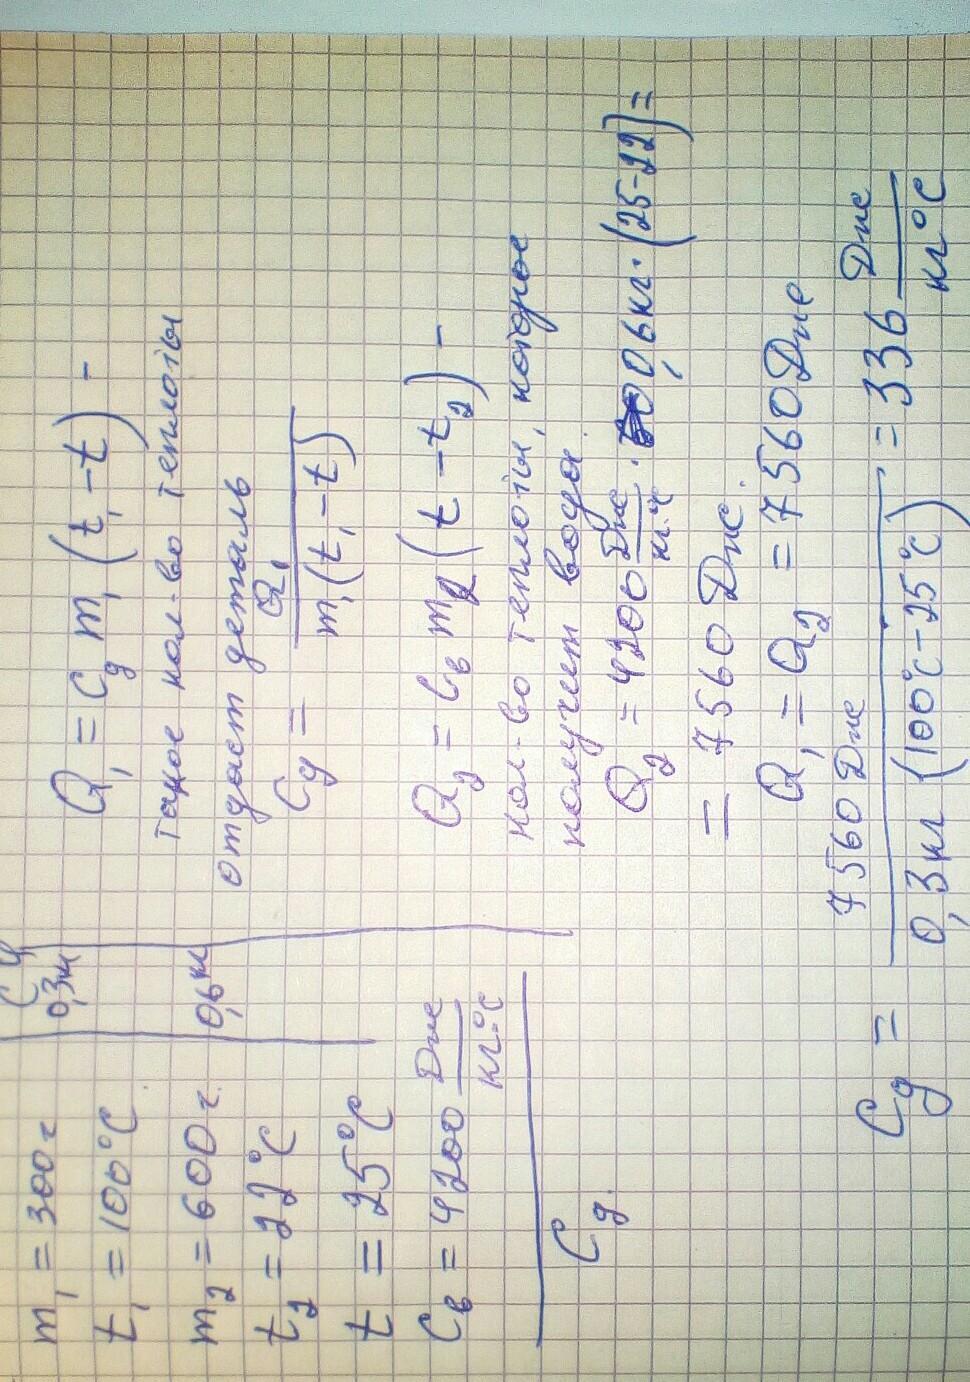 m₁ = 300г
t₁ = 100°C
m₂ = 600г.
t₂ = 22°C
t = 25°C
Cв = 4200 Дж/кг·°C
Cд.
0,3кг
0,6кг
Q₁ = Cд m₁ (t₁ - t) -
такое кол-во теплоты
отдаст деталь
Cд = Q₁/m₁(t₁ - t)
Q₂ = Cв m₂ (t - t₂) -
кол-во теплоты, которое
получит вода.
Q₂ = 4200 Дж/кг·°C · 0,6кг·(25-22)=
= 7560 Дж.
Q₁ = Q₂ = 7560 Дж
Cд = 7560 Дж/0,3кг (100°C-25°C) = 336 Дж/кг°C